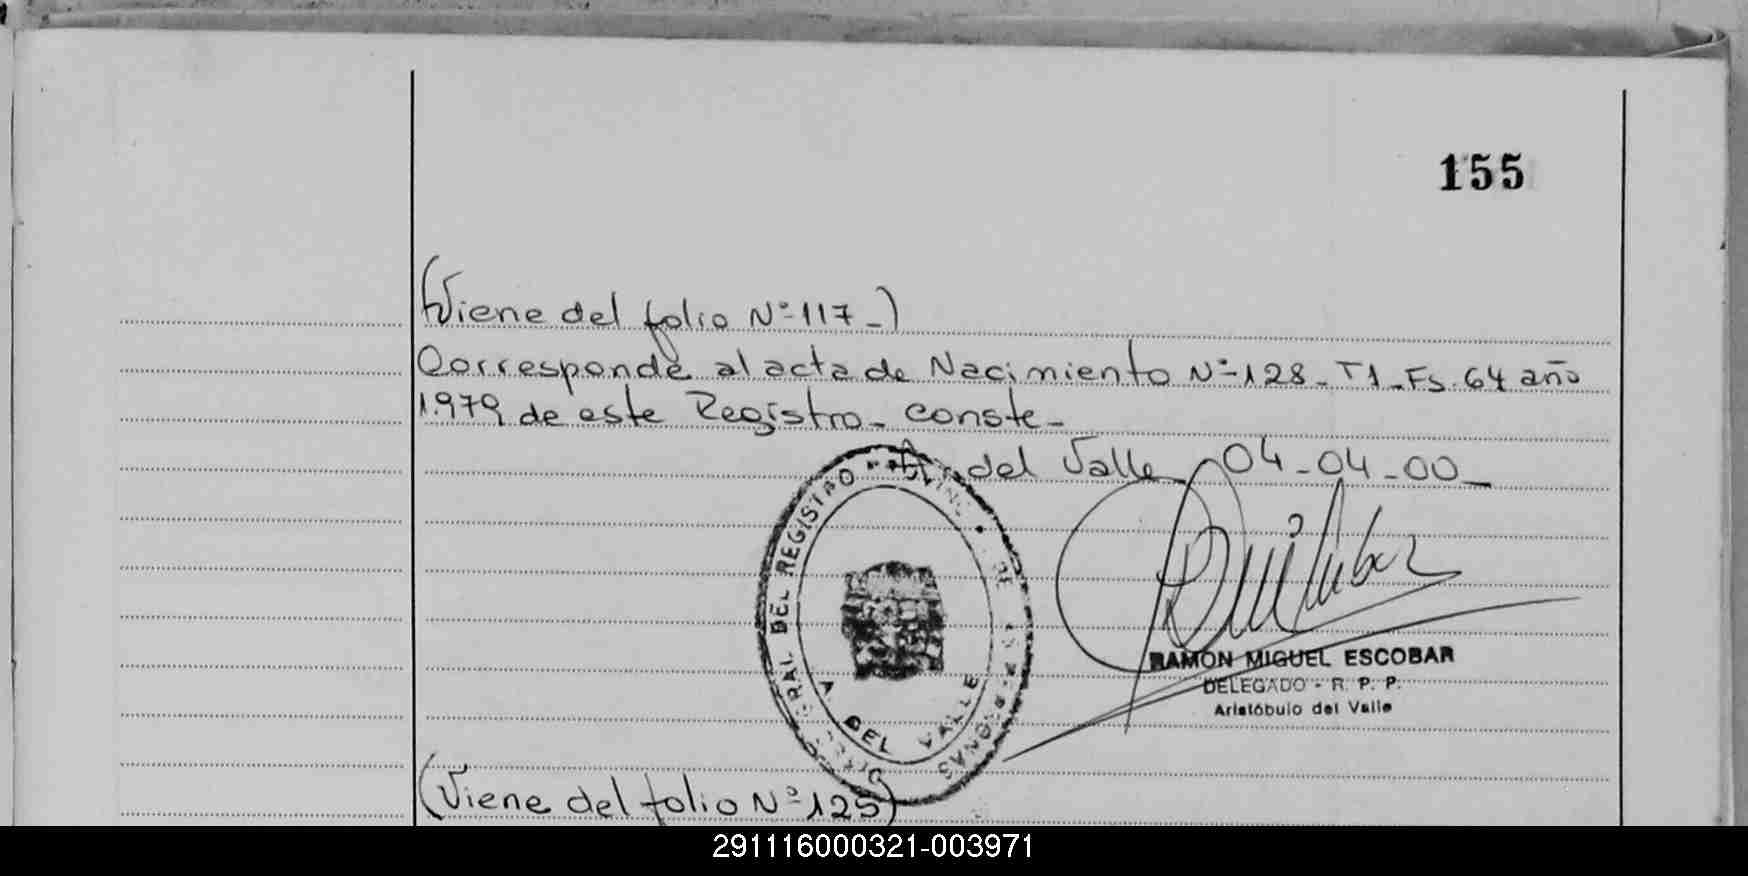 155
(Viene del folio Nº 117-)
Corresponde al acta de Nacimiento Nº 128- T1- Fs. 64 año
1.979 de este Registro- conste-
del Valle 04-04-00-
DEL REGISTRO
DEL VALLE
RAMON MIGUEL ESCOBAR
DELEGADO - R. P. P.
Aristóbulo del Valle
(Viene del folio Nº 125)
291116000321-003971